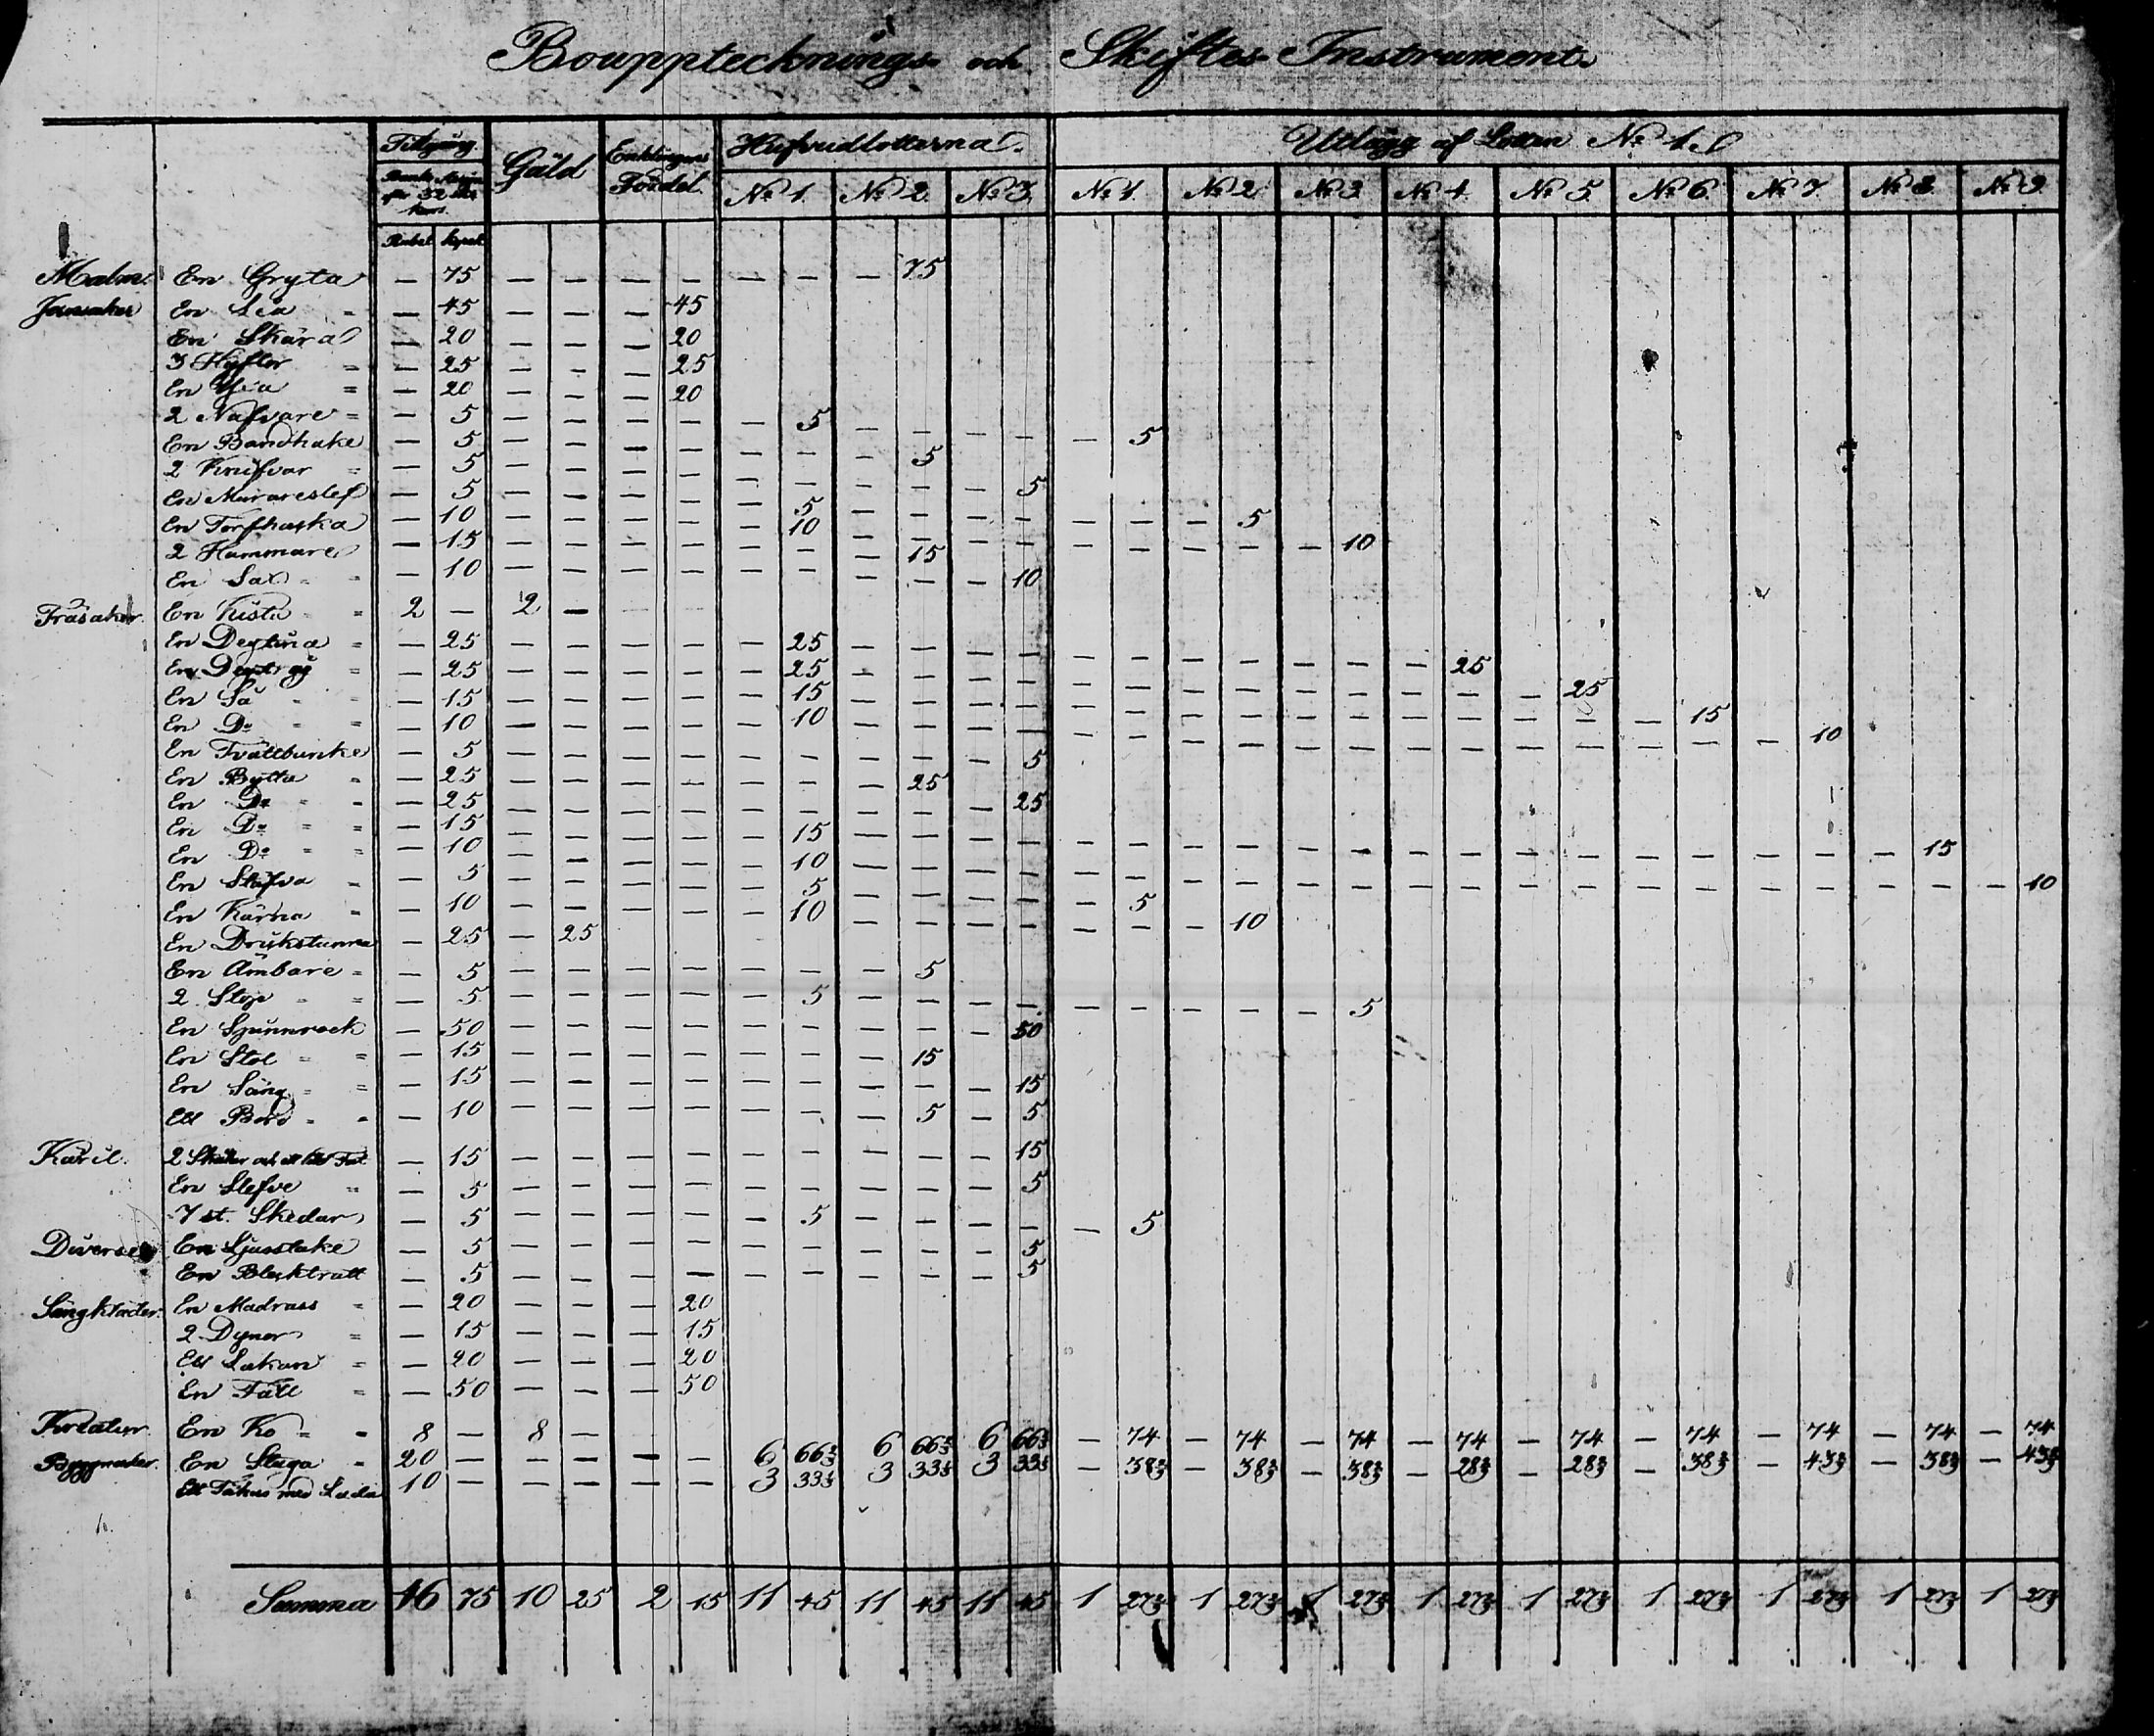 Boupptecknings och Skiftes Instrument
Tillgång. Gäld Enklingens Fördel. Hufvudlotterna. Utlägg af Lotten No 1.
No 1. No 2. No 3. No 1. No 2. No 3. No 4. No 5. No 6. No 7. No 8. No 9.
Rubel kopek
Malm. En Gryta — 75 — — — — — — — 75
Jernsaker En Lia — 45 — — — 45
En Skära — 20 — — — 20
3 Hyflor — 25 — — — 25
En — 20 — — — 20
2 Nafvare — 5 — — — — — 5 — — — — — 5
En Bandhake — 5 — — — — — — — 5
2 Knifvar — 5 — — — — — — — — — 5
En Murareslef — 5 — — — — — 5 — — — — — — — 5
En Torfhacka — 10 — — — — — 10 — — — — — — — — — 10
2 Hammare — 15 — — — — — — — 15
En Sax — 10 — — — — — — — — — 10
Träsaker. En Kista 2 — 2 —
En Degtina — 25 — — — — — 25 — — — — — — — — — — — 25
En Degtråg — 25 — — — — — 25 — — — — — — — — — — — — — 25
En Så — 15 — — — — — 15 — — — — — — — — — — — — — — — 15
En Do — 10 — — — — — 10 — — — — — — — — — — — — — — — — — 10
En Tvättbunke — 5 — — — — — — — — — 5
En Bytta — 25 — — — — — — — 25
En Do — 25 — — — — — — — — — 25
En Do — 15 — — — — — 15 — — — — — — — — — — — — — — — — — — — 15
En Do — 10 — — — — — 10 — — — — — — — — — — — — — — — — — — — — — 10
En Stäfva — 5 — — — — — 5 — — — — — 5
En Kärna — 10 — — — — — 10 — — — — — — — 10
En Drikstunna — 25 — 25
En Ämbare — 5 — — — — — — — 5
2 Stop — 5 — — — — — 5 — — — — — — — — — 5
En Spinnrock — 50 — — — — — — — — — 50
En Stol — 15 — — — — — — — 15
En Säng — 15 — — — — — — — — — 15
Ett Bord — 10 — — — — — — — 5 — 5
Käril. 2 Skålar och ett litet Fat — 15 — — — — — — — — — 15
En Slefve — 5 — — — — — — — — — 5
7 st. Skedar — 5 — — — — — 5 — — — — — 5
Diverse En Ljusstake — 5 — — — — — — — — — 5
En Blecktratt — 5 — — — — — — — — — 5
Sängkläder. En Madrass — 20 — — — 20
2 Dynor — 15 — — — 15
Ett Lakan — 20 — — — 20
En Fäll — 50 — — — 50
Kreatur. En Ko 8 — 8 —
Byggnader. En Stuga 20 — — — — — 6 66⅔ 6 66⅔ 6 66⅔ — 74 — 74 — 74 — 74 — 74 — 74 — 74 — 74 — 74
Ett Fähus med Lada 10 — — — — — 3 33⅓ 3 33⅓ 3 33⅓ — 38 — 38 — 38 — 28 — 28 — 38 — 43 — 38 — 43
Summa 46 75 10 25 2 15 11 45 11 45 11 45 1 27 1 27 1 27 1 27 1 27 1 27 1 27 1 27 1 27